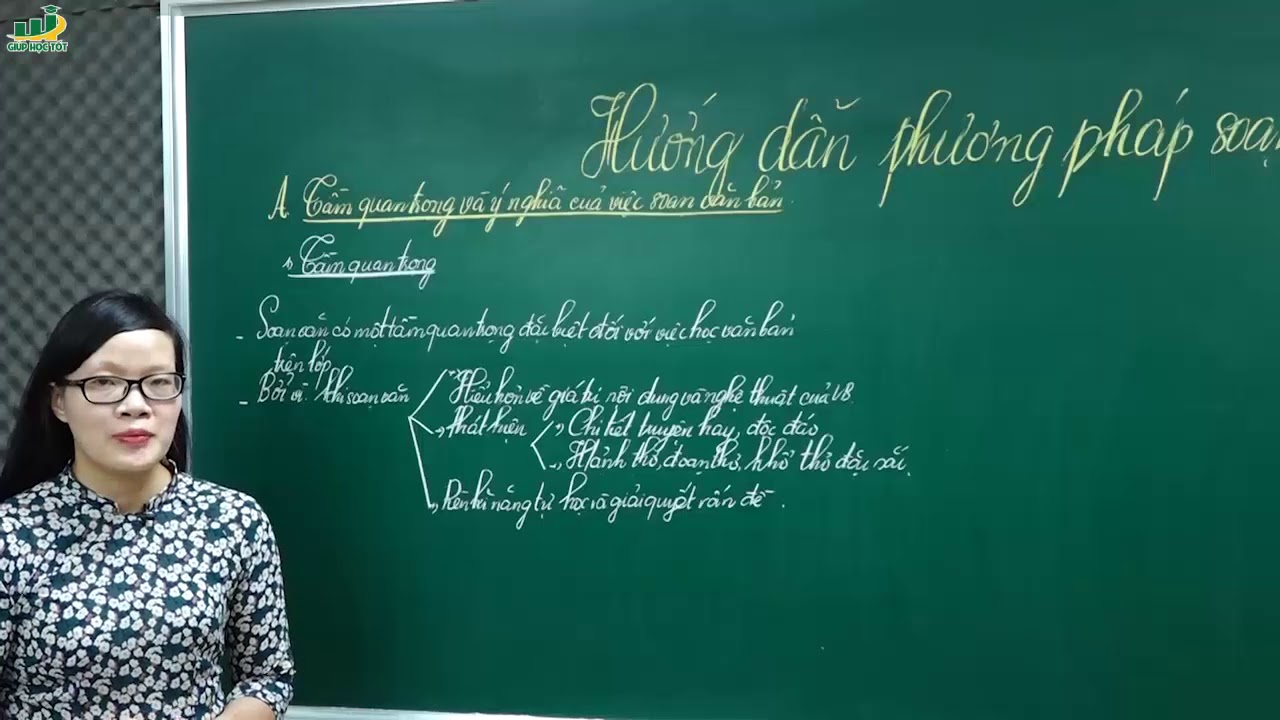 GIÚP HỌC TỐT
Hướng dẫn phương pháp soạn
A. Tầm quan trọng và ý nghĩa của việc soạn văn bản.
1, Tầm quan trọng
- Soạn văn có một tầm quan trọng đặc biệt đối với việc học văn bản
trên lớp
- Bởi vì: khi soạn văn
+, Hiểu hơn về giá trị nội dung và nghệ thuật của VB
+, Phát hiện
+, Chi tiết truyện hay, độc đáo
+, Hình thơ, đoạn thơ, khổ thơ đặc sắc.
+, Rèn kĩ năng tự học và giải quyết vấn đề.